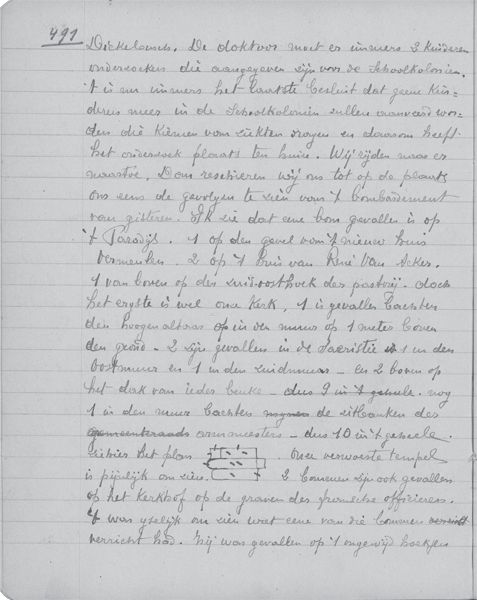 491
Diekebusch. De doktoor moet er immers 2 kinderen
onderzoeken die aangegeven zijn voor de Schoolkolonien.
't is nu immers het laatste besluit dat geene kin-
deren meer in de Schoolkolonien zullen aanveerd wor-
den die kiemen van ziekten dragen en daarom heeft
het onderzoek plaats ten huize. Wij rijden naar er
naartoe. Dan reserveren wij ons tot op de plaats
ons eens de gevolgen te zien van 't bombardement
van gisteren. Ik zie dat eene bom gevallen is op
't Paradijs. 1 op den gevel van 't nieuw huis
Vermeulen. 2 op 't huis van René Van Acker.
1 van boven op den zuid-oosthoek der pastorij. doch
het ergste is wel onze Kerk, 1 is gevallen bachten
den hoogen altaar op in den muur op 1 meter boven
den grond - 2 zijn gevallen in de Sacristie 1 in den
oostmuur en 1 in den zuidmuur - en 2 boven op
het dak van ieder beuke - dus 9 in 't geheele. nog
1 in den muur bachten de zitbanken der
gemeenteraads armmeesters - dus 10 in 't geheele.
Ziehier het plan . Onze verwoeste tempel
is pijnlijk om zien. 2 bommen zijn ook gevallen
op het Kerkhof op de graven der fransche officieren.
't was ijselijk om zien wat eene van die bommen verricht
verricht had. Zij was gevallen op 't ongewijd hoekje